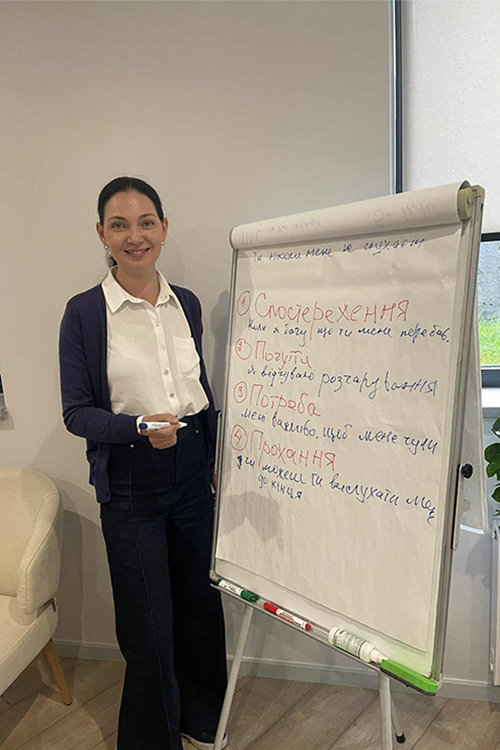 Ти ніколи мене не слухаєш
① Спостереження
Коли я бачу, що ти мене перебив,
② Почуття
я відчуваю розчарування
③ Потреба
мені важливо, щоб мене чули
④ Прохання
чи можеш ти вислухати мене
до кінця